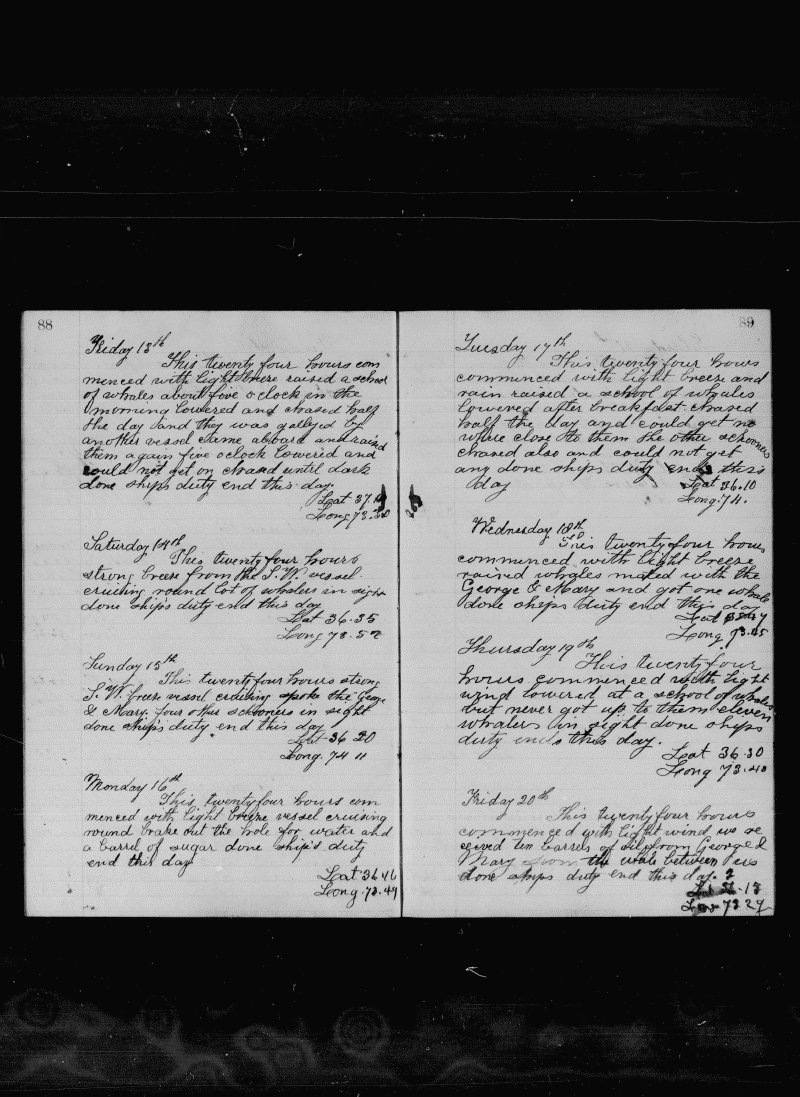 88
Friday 13th
This twenty four hours com
menced with light breze raised a school
of whales about five oclock in the
morning lowered and chased half
the day and they was gallyed by
another vessel came aboard and raised
them again five oclock lowered and
could not get on chased until dark
done ships duty end this day.
Lat 37.
Long 73.30
Saturday 14th
This twenty four hours
strong breeze from the S.W. vessel
cruising round lot of whalers in sight
done ship's duty end this day
Lat 36.35
Long 73.52
Sunday 15th
This twenty four hours strong
S.W. breze vessel cruising spoke the Geoge
& Mary. four other schooners in sight
done ship's duty end this day
Lat 36 20
Long. 74 11
Monday 16th
This twenty four hours com
menced with light breeze vessel cruising
round brake out the hole for water and
a barrel of sugar done ship's duty
end this day
Lat 36 46
Long. 73.49
89
Tuesday 17th
This twenty four hours
commenced with light breeze and
rain raised a school of whales
lowered after breakfast chased
half the day and could get no
where close to them the other schooners
chased also and could not get
any done ships duty ends this
day
Lat 36.10
Long. 74.
Wednesday 18th
This twenty four hours
commenced with light breeze
raised whales mated with the
George & Mary and got one whale
done ships duty end this day
Lat
Long 73.45
Thursday 19th
This twenty four
hours commenced with light
wind lowered at a school of whales
but never got up to them eleven
whalers in sight done ships
duty ends this day.
Lat 36.30
Long 73.40
Friday 20th
This twenty four hours
commenced with light wind we re
ceived ten barrels of oil from George &
Mary from the whale between us
done ships duty end this day.
Lat
Long 73 27